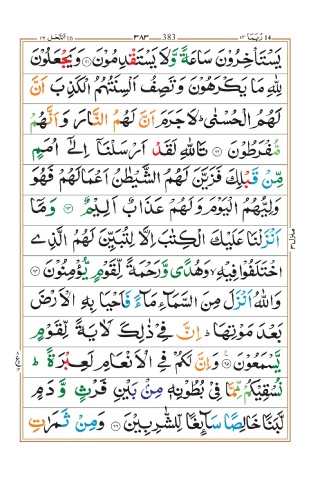 النحل ١٦ ٣٨٣ 383 ربما ١٤
يَسْتَاْخِرُوْنَ سَاعَةً وَّلَا يَسْتَقْدِمُوْنَ ۝٦١ وَيَجْعَلُوْنَ
لِلّٰهِ مَا يَكْرَهُوْنَ وَتَصِفُ اَلْسِنَتُهُمُ الْكَذِبَ اَنَّ
لَهُمُ الْحُسْنٰى ؕ لَا جَرَمَ اَنَّ لَهُمُ النَّارَ وَاَنَّهُمْ
مُّفْرَطُوْنَ ۝٦٢ تَاللّٰهِ لَقَدْ اَرْسَلْنَاۤ اِلٰٓى اُمَمٍ
مِّنْ قَبْلِكَ فَزَيَّنَ لَهُمُ الشَّيْطٰنُ اَعْمَالَهُمْ فَهُوَ
وَلِيُّهُمُ الْيَوْمَ وَلَهُمْ عَذَابٌ اَلِيْمٌ ۝٦٣ وَمَاۤ
اَنْزَلْنَا عَلَيْكَ الْكِتٰبَ اِلَّا لِتُبَيِّنَ لَهُمُ الَّذِى
اخْتَلَفُوْا فِيْهِ ۙ وَهُدًى وَّرَحْمَةً لِّقَوْمٍ يُّؤْمِنُوْنَ ۝٦٤
وَاللّٰهُ اَنْزَلَ مِنَ السَّمَآءِ مَآءً فَاَحْيَا بِهِ الْاَرْضَ
بَعْدَ مَوْتِهَا ؕ اِنَّ فِىْ ذٰلِكَ لَاٰيَةً لِّقَوْمٍ
يَّسْمَعُوْنَ ۝٦٥ وَاِنَّ لَكُمْ فِى الْاَنْعَامِ لَعِبْرَةً ؕ
نُسْقِيْكُمْ مِّمَّا فِىْ بُطُوْنِهٖ مِنْۢ بَيْنِ فَرْثٍ وَّدَمٍ
لَّبَنًا خَالِصًا سَآئِغًا لِّلشّٰرِبِيْنَ ۝٦٦ وَمِنْ ثَمَرٰتِ